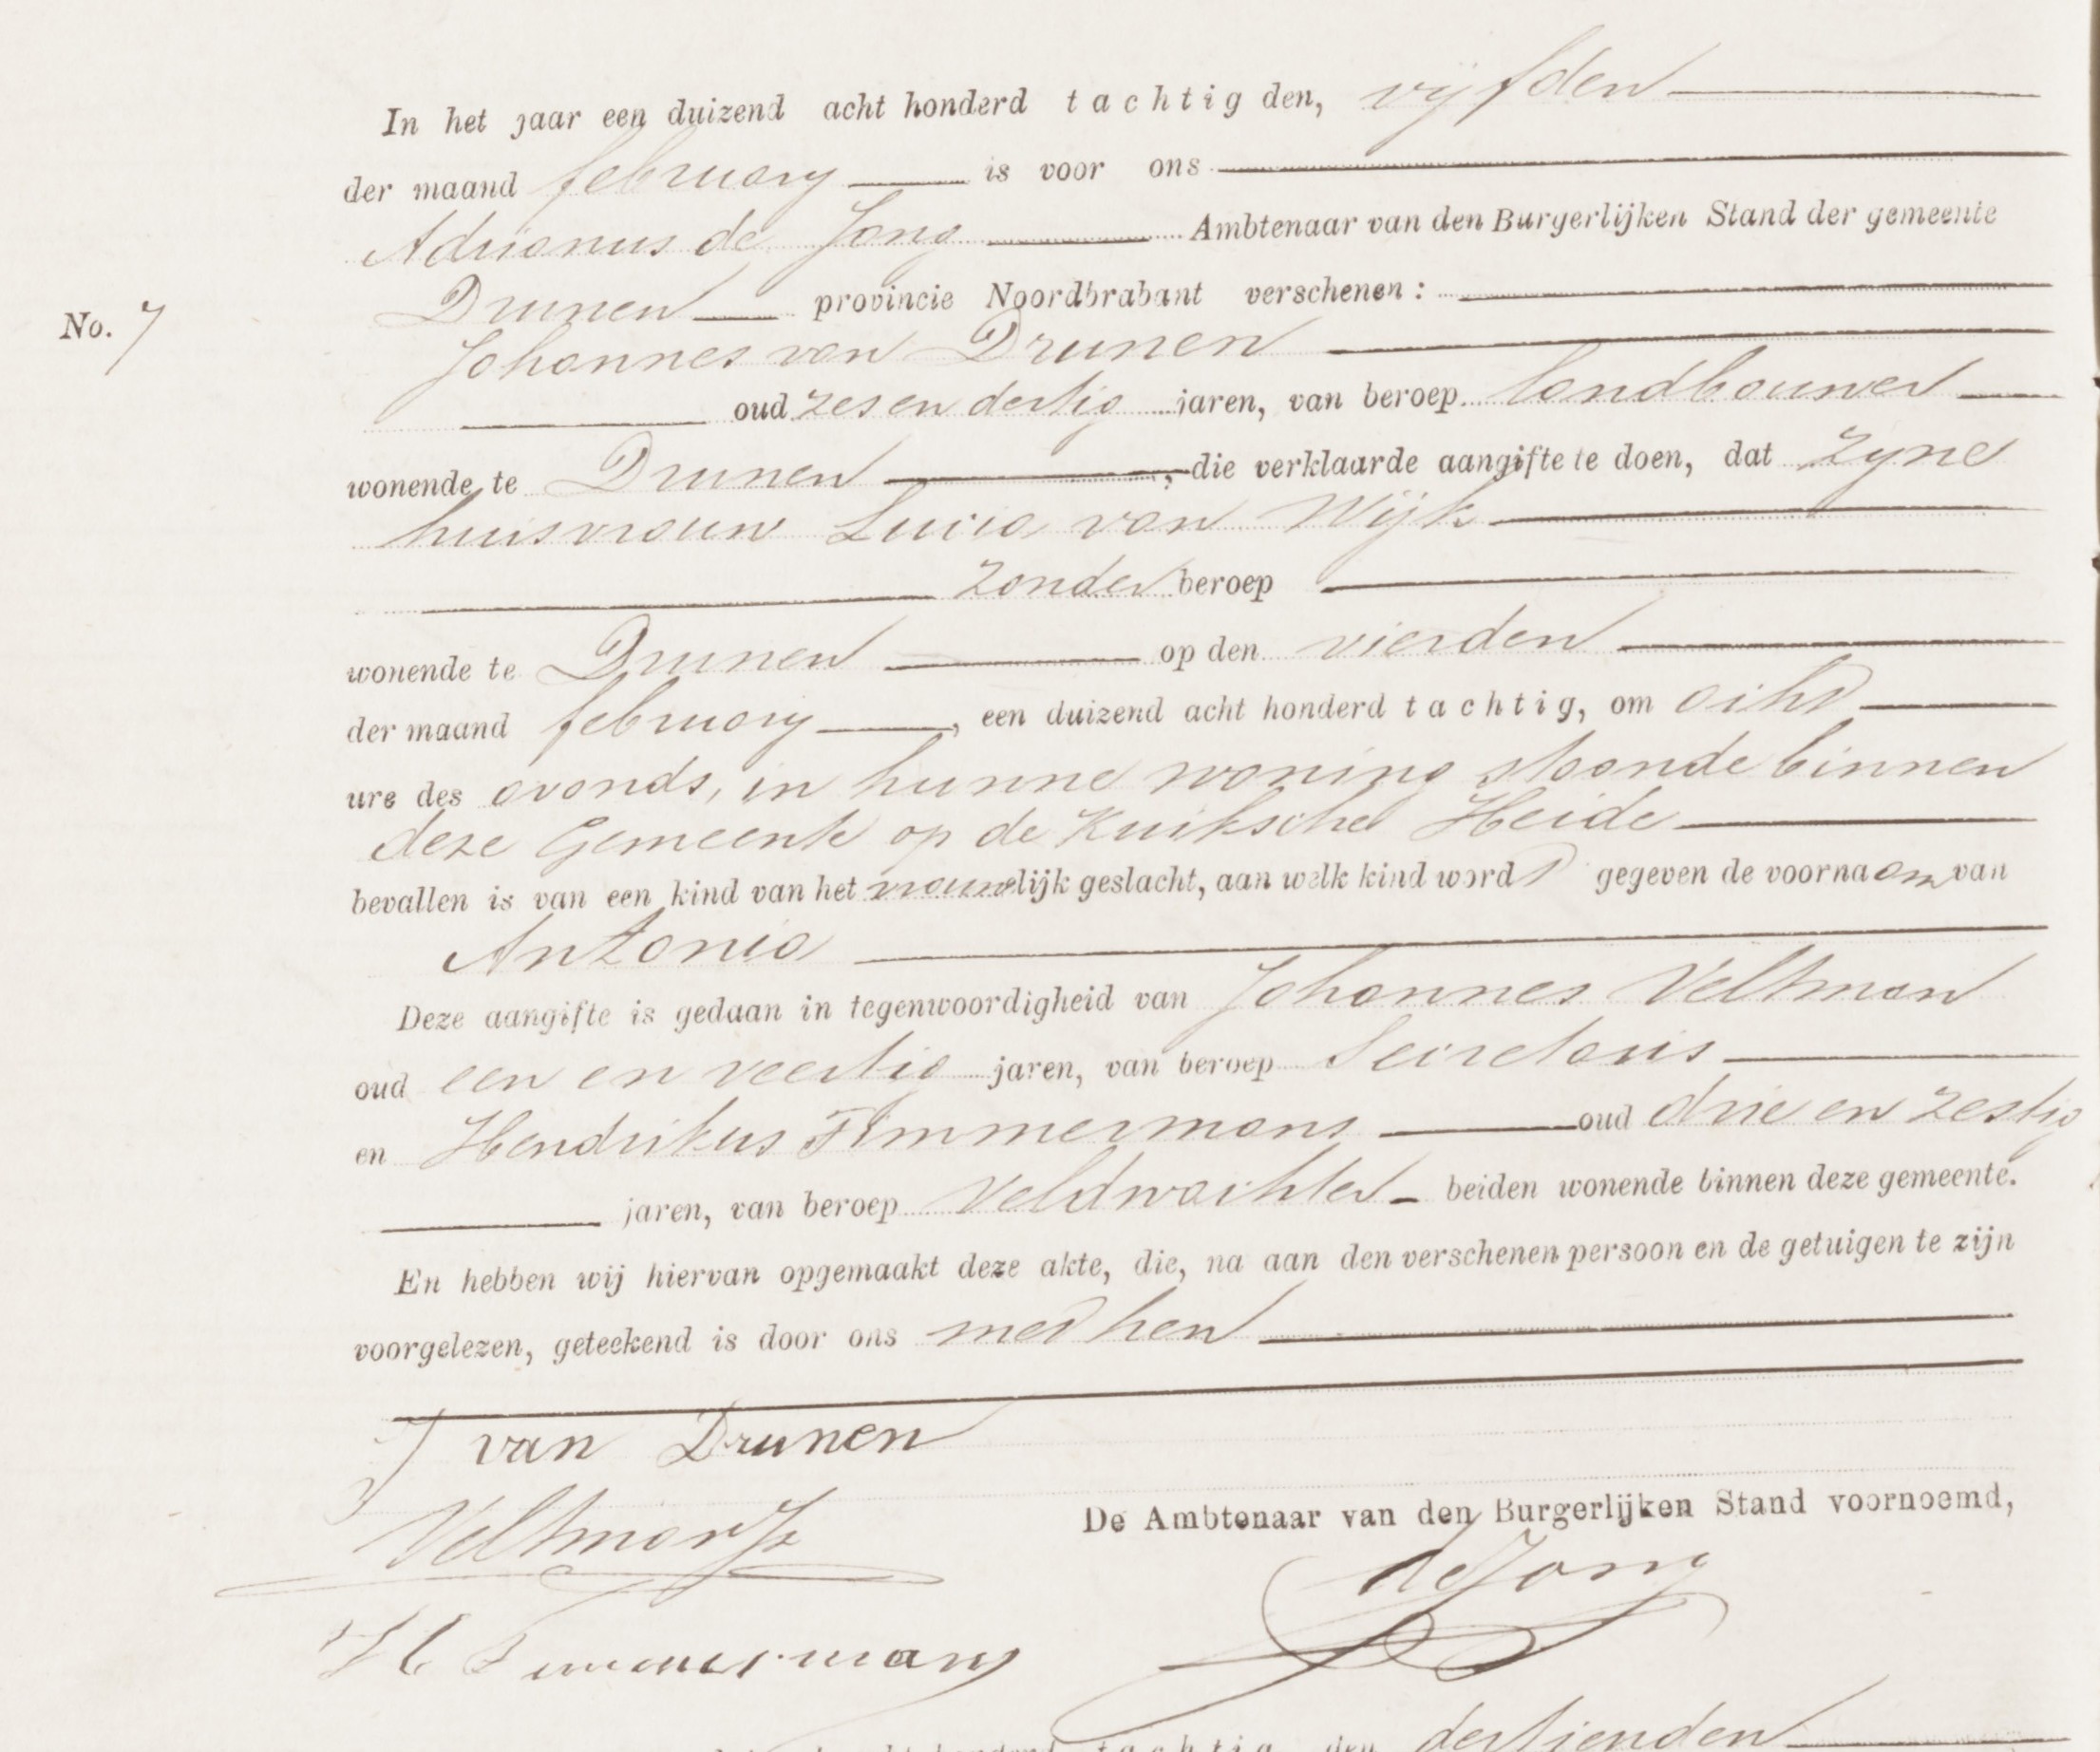 In het jaar een duizend acht honderd tachtig den, vijfden
der maand february is voor ons
Adrianus de Jong Ambtenaar van den Burgerlijken Stand der gemeente
Drunen provincie Noordbrabant verschenen:
No. 7
Johannes van Drunen
oud zes en dertig jaren, van beroep landbouwer
wonende te Drunen, die verklaarde aangifte te doen, dat zyne
huisvrouw Lucia van Wijk
zonder beroep
wonende te Drunen op den vierden
der maand february, een duizend acht honderd tachtig, om acht
ure des avonds, in hunne woning staande binnen
deze Gemeente op de Kuiksche Heide
bevallen is van een kind van het vrouwelijk geslacht, aan welk kind wordt gegeven de voornaam van
Antonia
Deze aangifte is gedaan in tegenwoordigheid van Johannes Veltman
oud een en veertig jaren, van beroep Secretaris
en Hendrikus Timmermans oud drie en zestig
jaren, van beroep Veldwachter beiden wonende binnen deze gemeente.
En hebben wij hiervan opgemaakt deze akte, die, na aan den verschenen persoon en de getuigen te zijn
voorgelezen, geteekend is door ons met hen
J van Drunen
Veltman
De Ambtenaar van den Burgerlijken Stand voornoemd,
de Jong
H Timmermans
tachtig den dertienden